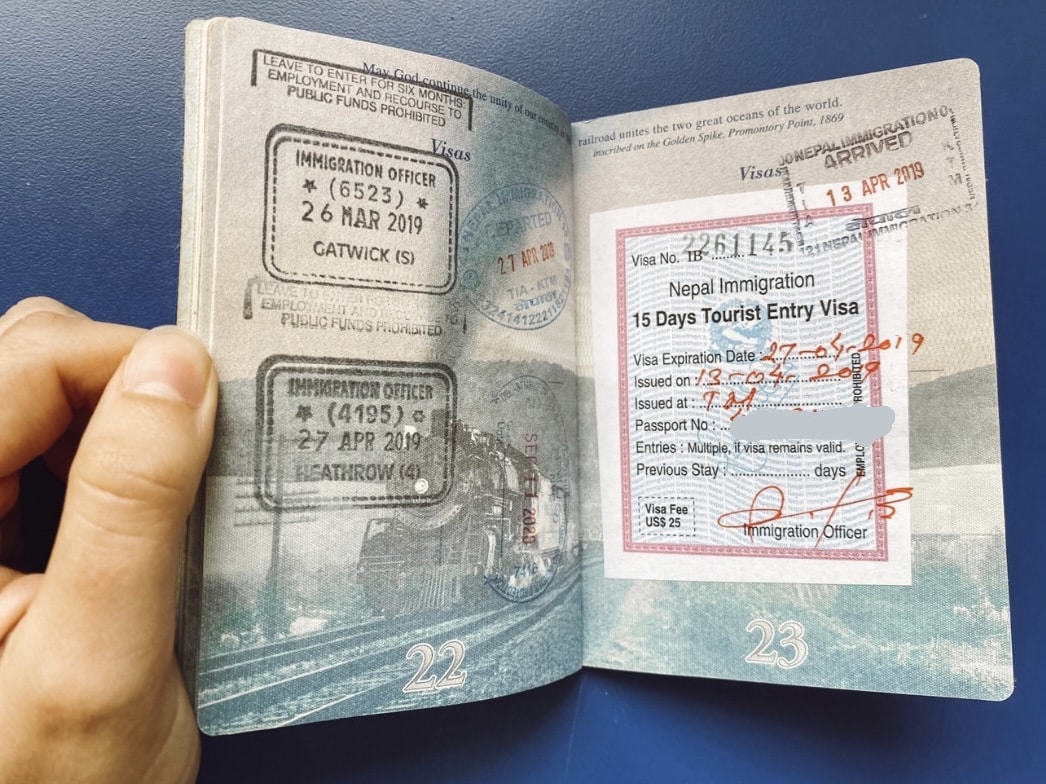 May God continue the unity of our country as
Visas
LEAVE TO ENTER FOR SIX MONTHS:
EMPLOYMENT AND RECOURSE TO
PUBLIC FUNDS PROHIBITED
IMMIGRATION OFFICER
* (6523) *
26 MAR 2019
GATWICK (S)
NEPAL IMMIGRATION
DEPARTED
27 APR 2019
TIA - KTM
LEAVE TO ENTER FOR SIX MONTHS
EMPLOYMENT AND RECOURSE TO
PUBLIC FUNDS PROHIBITED
IMMIGRATION OFFICER
* (4195) *
27 APR 2019
HEATHROW (4)
22
railroad unites the two great oceans of the world.
inscribed on the Golden Spike, Promontory Point, 1869
Visas
NEPAL IMMIGRATION
ARRIVED
13 APR 2019
NEPAL IMMIGRATION
Visa No. IB 2261145
Nepal Immigration
15 Days Tourist Entry Visa
Visa Expiration Date : 27-04-2019
Issued on : 13-04-2019
Issued at :
Passport No :
Entries : Multiple, if visa remains valid.
Previous Stay : .................... days
PROHIBITED
Visa Fee
US$ 25
Immigration Officer
23